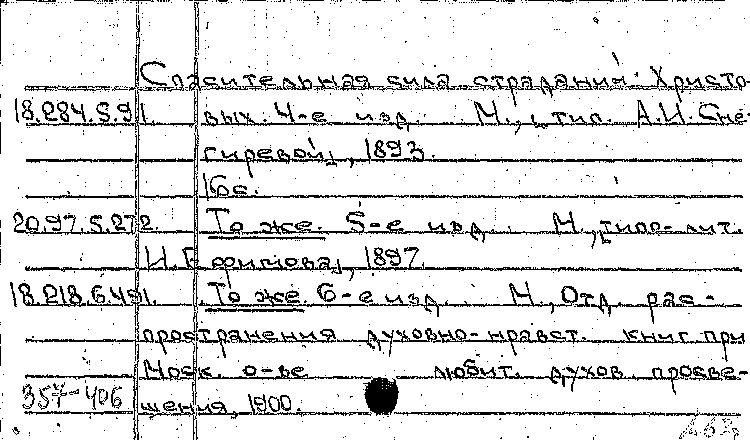 Спасительная сила страданий Христо-
18.284.5.91. вых. 4-е изд. М., [тип. А.И. Сне-
гиревой], 1893.
16с.
20.97.5.272. То же. 5-е изд. М., [типо-лит.
И. Ефимова], 1897.
18.218.6.491. То же. 6-е изд. М., Отд. рас-
пространения духовно-нравст. книг при
Моск. о-ве любит. духов. просве-
357-406 щения, 1900.